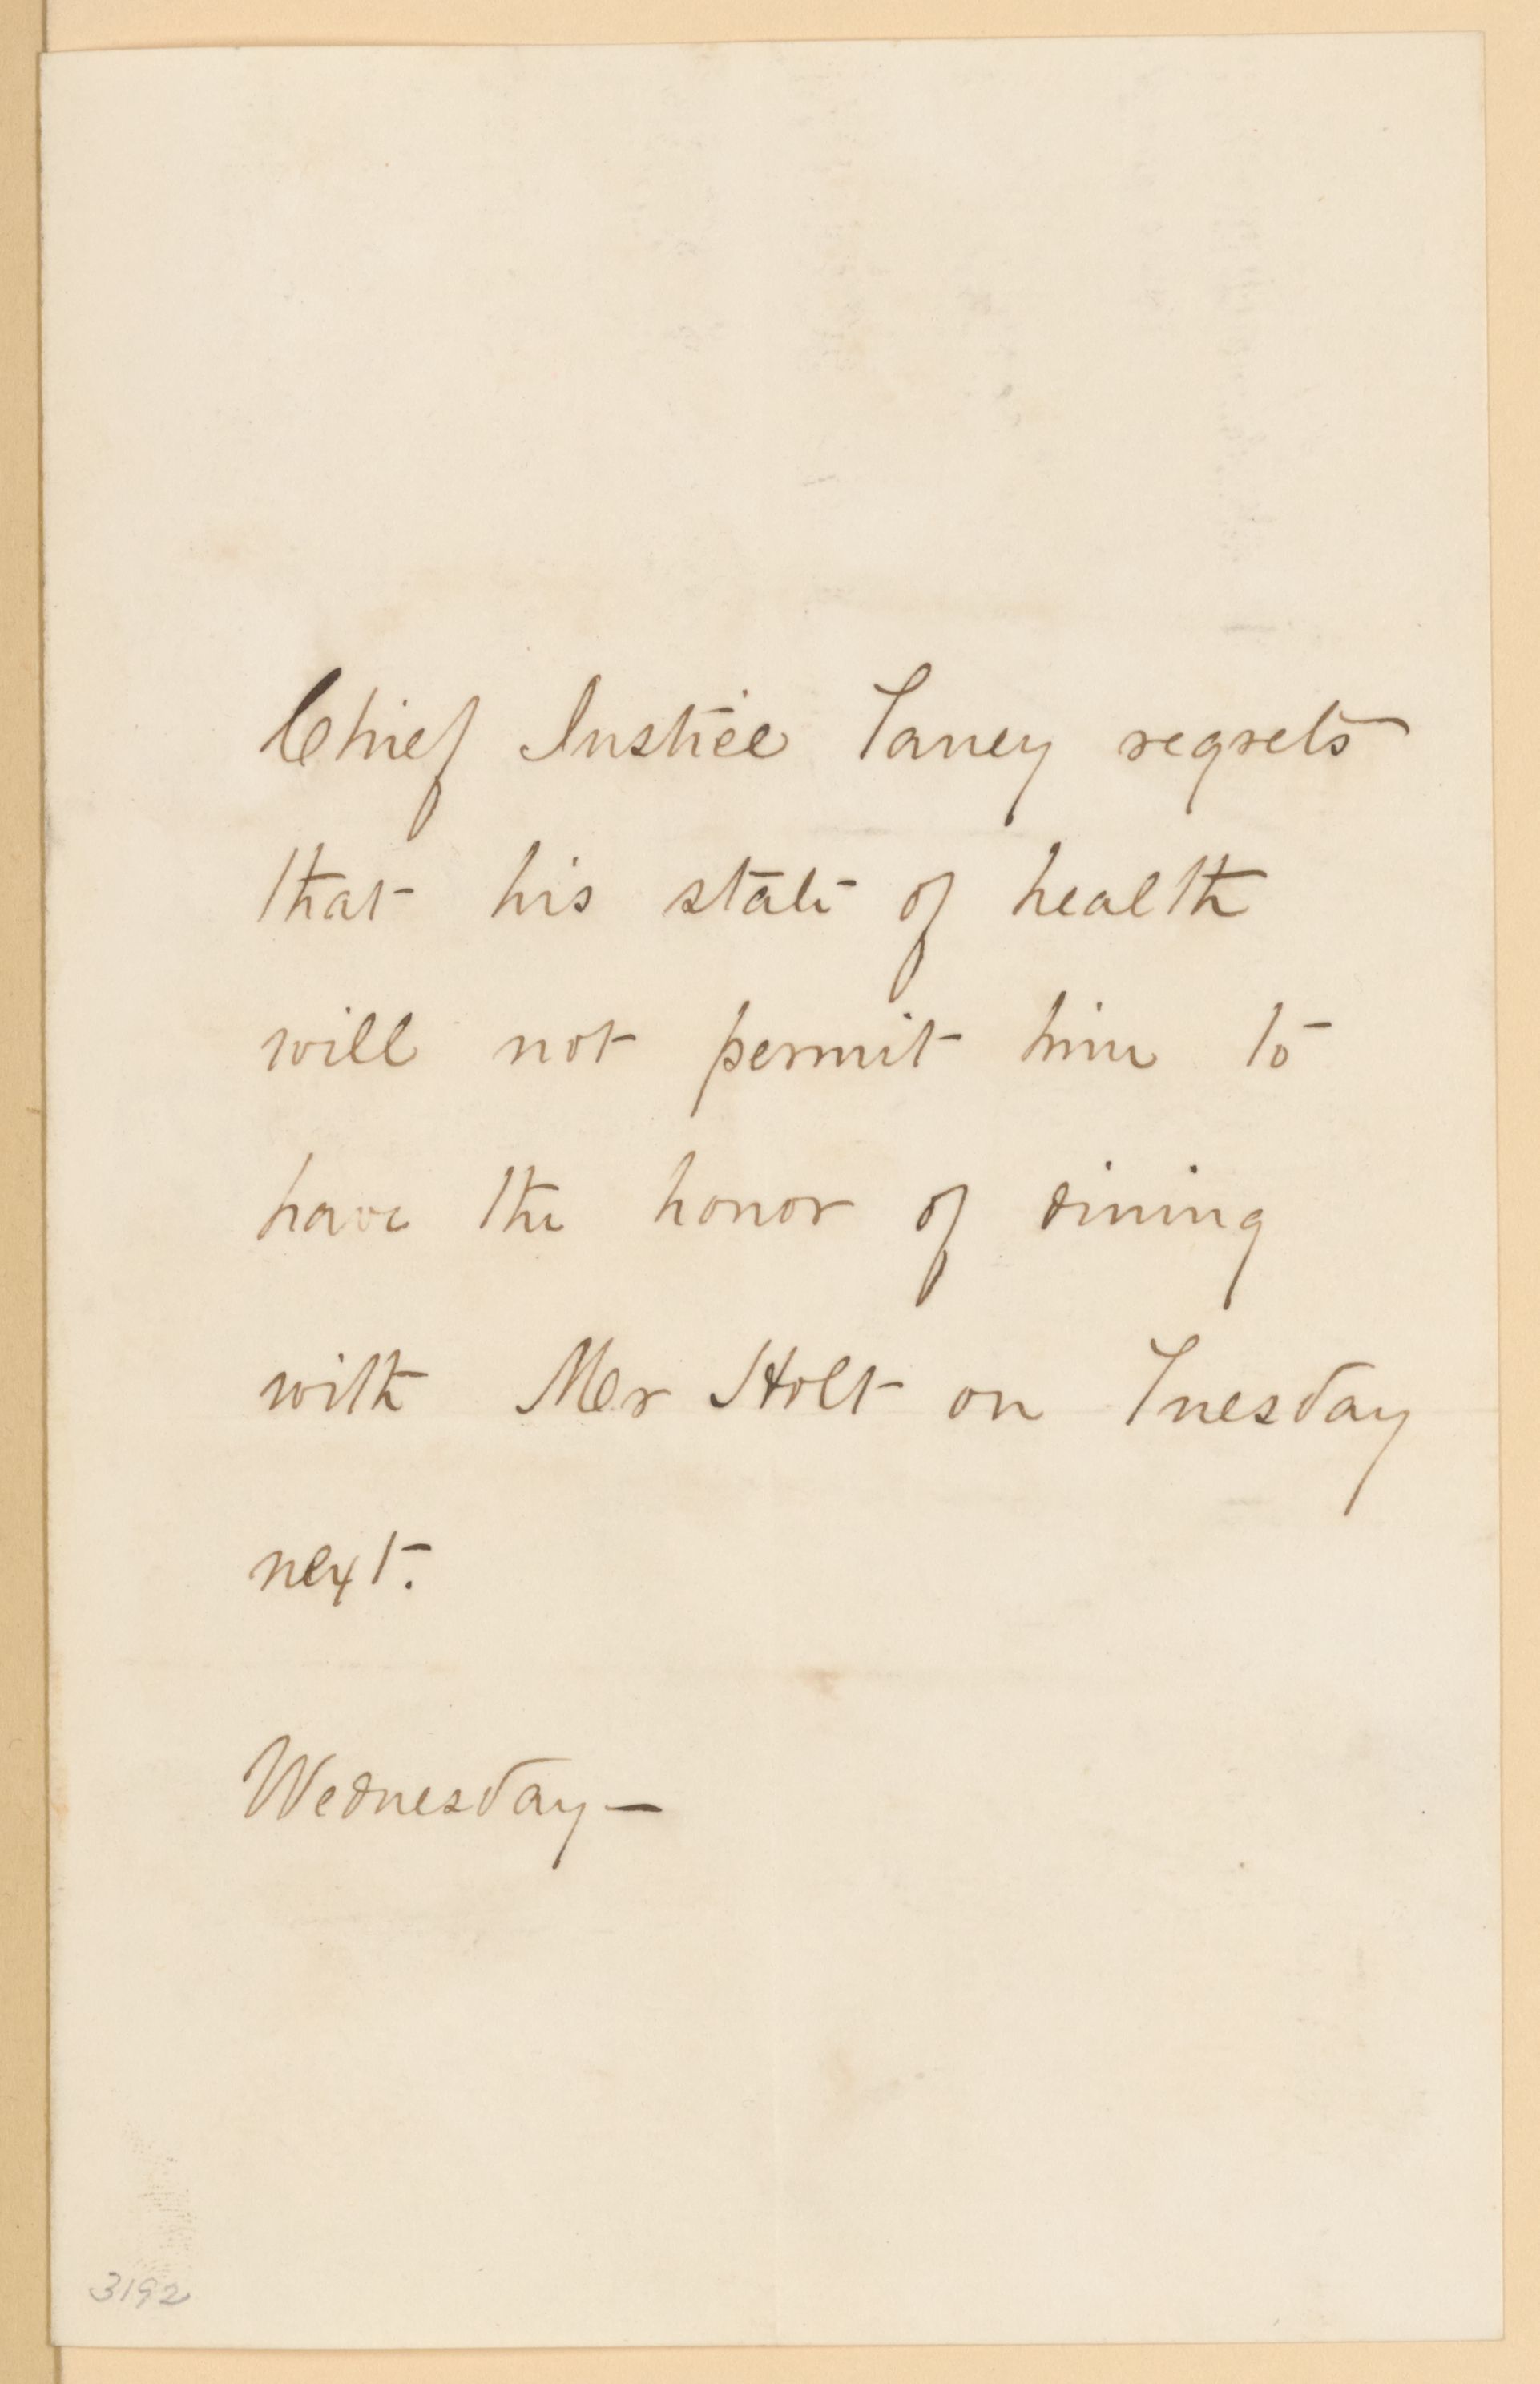 Chief Justice Taney regrets
that his state of health
will not permit him to
have the honor of dining
with Mr Holt on Tuesday
next.
Wednesday —
3192